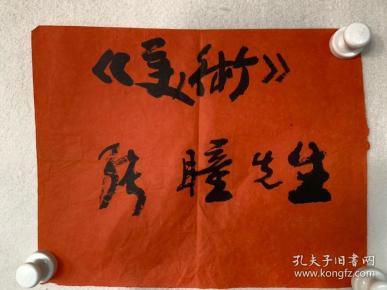 《美術》
張瞳先生
孔夫子旧书网
www.kongfz.com